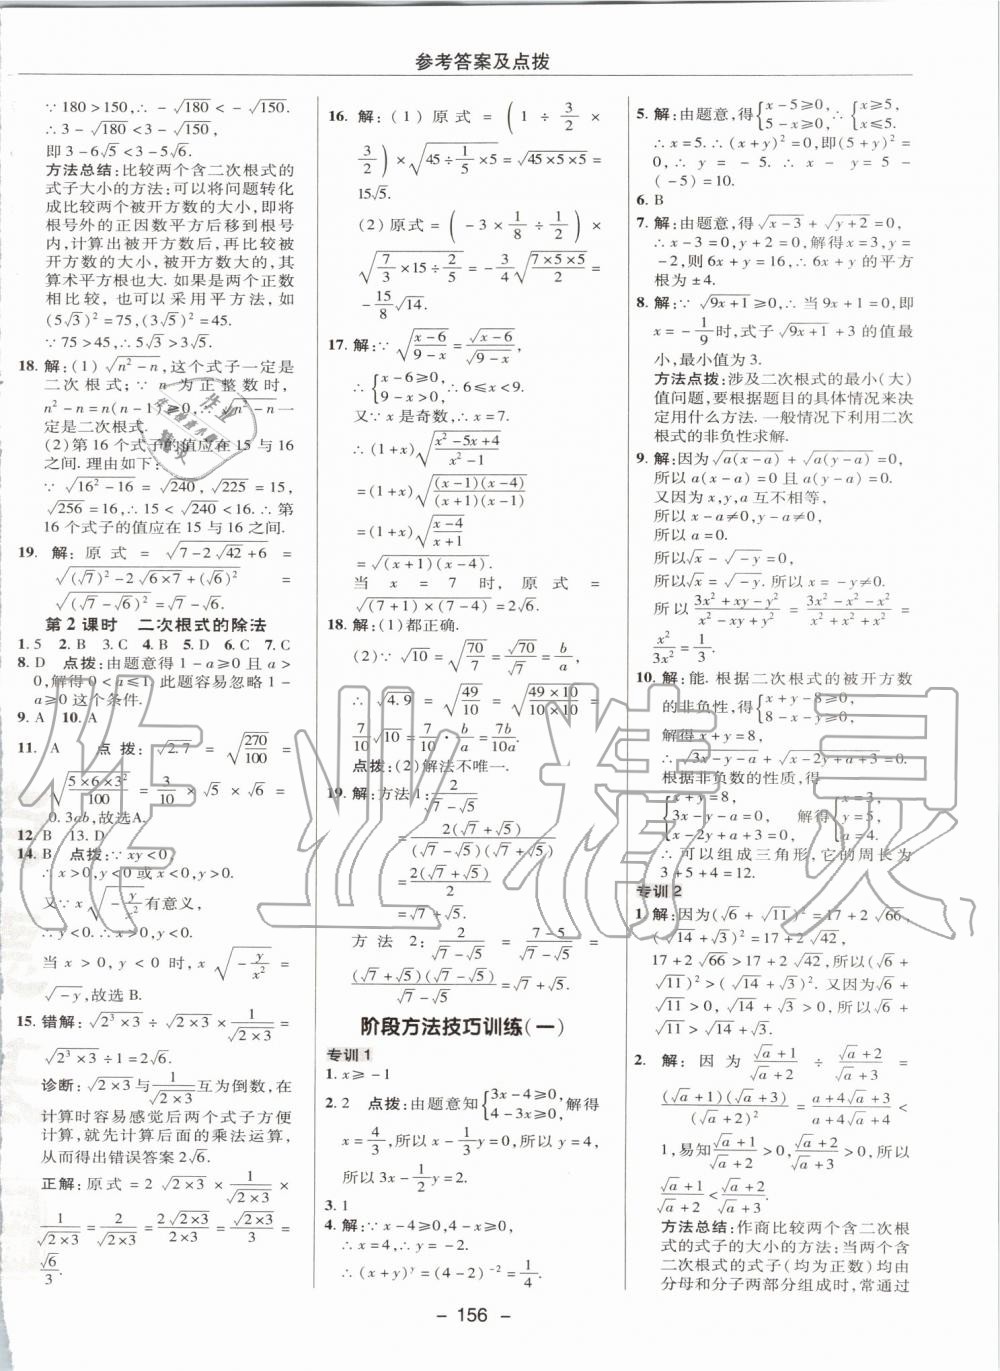 参考答案及点拨
∵180>150,∴-√180<-√150.
∴3-√180<3-√150,
即3-6√5<3-5√6.
方法总结:比较两个含二次根式的
式子大小的方法:可以将问题转化
成比较两个被开方数的大小,即将
根号外的正因数平方后移到根号
内,计算出被开方数后,再比较被
开方数的大小,被开方数大的,其
算术平方根也大.如果是两个正数
相比较,也可以采用平方法,如
(5√3)²=75,(3√5)²=45.
∵75>45,∴5√3>3√5.
18. 解:(1)√(n²-n),这个式子一定是
二次根式;∵n为正整数时,
n²-n=n(n-1)≥0,∴√(n²-n)一
定是二次根式.
(2)第16个式子的值应在15与16
之间.理由如下:
∵√(16²-16)=√240,√225=15,
√256=16,∴15<√240<16.∴第
16个式子的值应在15与16之间.
19. 解:原式=√(7-2√42+6)=
√((√7)²-2√(6×7)+(√6)²)=
√((√7-√6)²)=√7-√6.
第2课时 二次根式的除法
1. 5 2. B 3. C 4. B 5. D 6. C 7. C
8. D 点拨:由题意得1-a≥0且a>
0,解得0<a≤1.此题容易忽略1-
a≥0这个条件.
9. A 10. A
11. A 点拨:√2.7=√(270/100)=
√(5×6×3²/100)=3/10×√5×√6=
0.3ab,故选A.
12. B 13. D
14. B 点拨:∵xy<0,
∴x>0,y<0或x<0,y>0.
又∵x√(-y/x²)有意义,
∴y<0.∴x>0,y<0.
当x>0,y<0时,x√(-y/x²)=
√(-y),故选B.
15. 错解:√(2³×3)÷√(2×3)×1/√(2×3)=
√(2³×3)÷1=2√6.
诊断:√(2×3)与1/√(2×3)互为倒数,在
计算时容易感觉后两个式子方便
计算,就先计算后面的乘法运算,
从而得出错误答案2√6.
正解:原式=2√(2×3)×1/√(2×3)×
1/√(2×3)=2/√(2×3)=2√(2×3)/(2×3)=√(2×3)/3=
√6/3.
16. 解:(1)原式=(1÷3/2×
3/2)×√(45÷1/5×5)=√(45×5×5)=
15√5.
(2)原式=(-3×1/8÷1/2)×
√(7/3×15÷2/5)=-3/4√(7×5×5/2)=
-15/8√14.
17. 解:∵√((x-6)/(9-x))=√(x-6)/√(9-x),
∴{x-6≥0, 9-x>0,∴6≤x<9.
又∵x是奇数,∴x=7.
∴(1+x)√((x²-5x+4)/(x²-1))
=(1+x)√((x-1)(x-4)/((x+1)(x-1)))
=(1+x)√((x-4)/(x+1))
=√((x+1)(x-4)).
当x=7时,原式=
√((7+1)×(7-4))=2√6.
18. 解:(1)都正确.
(2)∵√10=√(70/7)=√70/√7=b/a,
∴√4.9=√(49/10)=√(49×10/(10×10))=
7/10√10=7/10·b/a=7b/10a.
点拨:(2)解法不唯一.
19. 解:方法1:2/(√7-√5)
=2(√7+√5)/((√7-√5)(√7+√5))
=2(√7+√5)/2
=√7+√5.
方法2:2/(√7-√5)=(7-5)/(√7-√5)=
(√7+√5)(√7-√5)/(√7-√5)=√7+√5.
阶段方法技巧训练(一)
专训1
1. x≥-1
2. 2 点拨:由题意知{3x-4≥0, 4-3x≥0,解得
x=4/3,所以x-1/3y=0.所以y=4.
所以x-1/3y=... 
3. 1
4. 解:∵x-4≥0,4-x≥0,
∴x=4,∴y=-2.
∴(x+y)^y=(4-2)⁻²=1/4.
5. 解:由题意,得{x-5≥0, 5-x≥0,∴{x≥5, x≤5.
∴x=5.∴(x+y)²=0,即(5+y)²=
0,∴y=-5.∴x-y=5-
(-5)=10.
6. B
7. 解:由题意,得√(x-3)+√(y+2)=0,
∴x-3=0,y+2=0,解得x=3,y=
-2,则6x+y=16,∴6x+y的平方
根为±4.
8. 解:∵√(9x+1)≥0,∴当9x+1=0,即
x=-1/9时,式子√(9x+1)+3的值最
小,最小值为3.
方法点拨:涉及二次根式的最小(大)
值问题,要根据题目的具体情况来决
定用什么方法.一般情况下利用二次
根式的非负性求解.
9. 解:因为√(a(x-a))+√(a(y-a))=0,
所以a(x-a)=0且a(y-a)=0.
又因为x,y,a互不相等,
所以x-a≠0,y-a≠0,
所以a=0.
所以√x-√(-y)=0,
所以√x=√(-y).所以x=-y.
所以(3x²+xy-y²)/(x²-xy+y²)=(3x²-x²-x²)/(x²+x²+x²)=
x²/3x²=1/3.
10. 解:能.根据二次根式的被开方数
的非负性,得{x+y-8≥0, 8-x-y≥0,
解得x+y=8,
∴√(3x-y-a)+√(x-2y+a+3)=0.
根据非负数的性质,得
{x+y=8, 3x-y-a=0, x-2y+a+3=0. 解得{x=3, y=5, a=4.
∴可以组成三角形,它的周长为
3+5+4=12.
专训2
1. 解:因为(√6+√11)²=17+2√66,
(√14+√3)²=17+2√42,
17+2√66>17+2√42,所以(√6+
√11)²>(√14+√3)².又因为√6+
√11>0,√14+√3>0,所以√6+
√11>√14+√3.
2. 解:因为(√a+1)/(√a+2)÷(√a+2)/(√a+3)=
(√a+1)(√a+3)/(√a+2)²=(a+4√a+3)/(a+4√a+4)<
1,易知(√a+1)/(√a+2)>0,(√a+2)/(√a+3)>0,所以
(√a+1)/(√a+2)<(√a+2)/(√a+3).
方法总结:作商比较两个含二次根
式的式子的大小的方法:当两个含
二次根式的式子(均为正数)均由
分母和分子两部分组成时,常通过
- 156 -
作业精灵